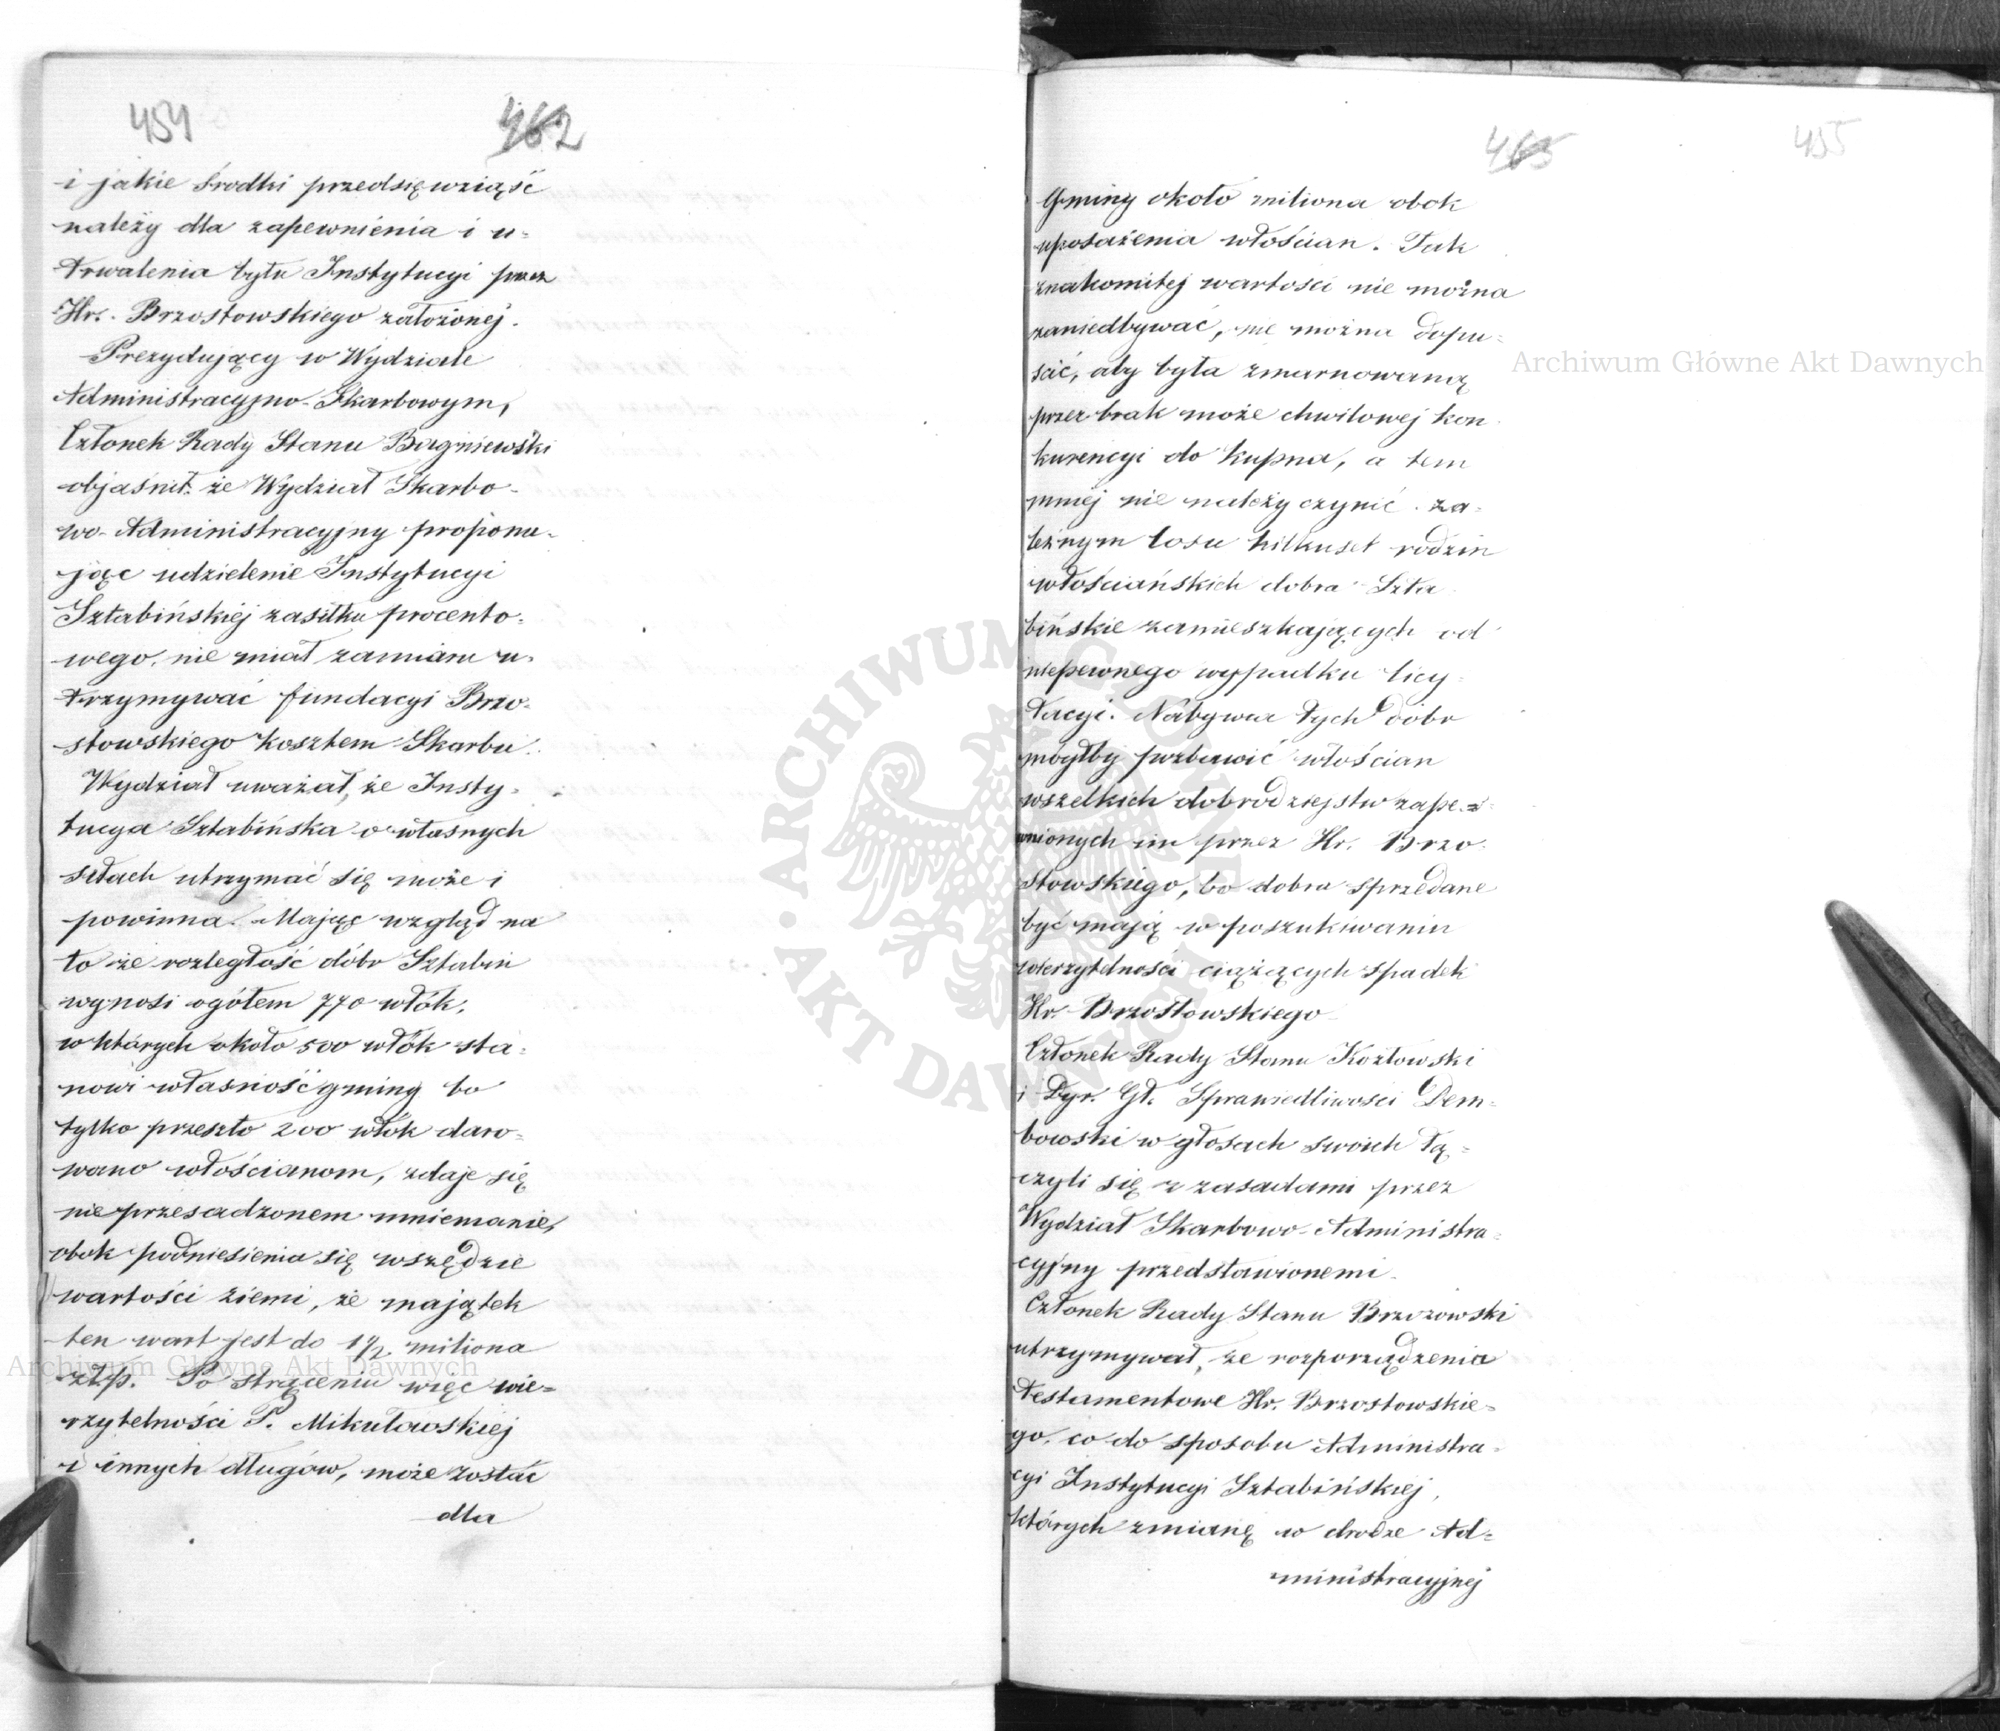 454
462
i jakie środki przedsięwziąść
należy dla zapewnienia i u-
trwalenia bytu Instytucyi przez
Hr. Brzostowskiego założonej.
Prezydujący w Wydziale
Administracyjno-Skarbowym,
Członek Rady Stanu Bagniewski
objaśnił że Wydział Skarbo-
wo-Administracyjny proponu-
jąc udzielenie Instytucyi
Sztabińskiej zasiłku procento-
wego, nie miał zamiaru u-
trzymywać fundacyi Brzo-
stowskiego kosztem Skarbu.
Wydział uważał, że Insty-
tucya Sztabińska o własnych
siłach utrzymać się może i
powinna. Mając wzgląd na
to że rozległość dóbr Sztabin
wynosi ogółem 770 włók,
w których około 500 włók sta-
nowi własność gminy bo
tylko przeszło 200 włók daro-
wano włościanom, zdaje się
nieprzesadzonem mniemanie,
obok podniesienia się wszędzie
wartości ziemi, że majątek
ten wart jest do 1 1/2 miliona
złp. Po strąceniu więc wie-
rzytelności P. Mikułowskiej
i innych długów, może zostać
dla
463
455
Gminy około miliona obok
uposażenia włościan. Tak
znakomitej wartości nie można
zaniedbywać, nie można dopu-
ścić, aby była zmarnowaną
przez brak może chwilowej kon-
kurencyi do kupna, a tem
mniej nie należy czynić za-
leżnym losu kilkuset rodzin
włościańskich dobra Szta-
bińskie zamieszkających od
niepewnego wypadku licy-
tacyi. Nabywca tych dóbr
mógłby pozbawić włościan
wszelkich dobrodziejstw zape-
wnionych im przez Hr. Brzo-
stowskiego, bo dobra sprzedane
być mają w poszukiwaniu
wierzytelności ciążących spadek
Hr. Brzostowskiego
Członek Rady Stanu Kozłowski
i Dyr. Gł. Sprawiedliwości Dem-
bowski w głosach swoich łą-
czyli się z zasadami przez
Wydział Skarbowo-Administra-
cyjny przedstawionemi.
Członek Rady Stanu Brzozowski
utrzymywał, że rozporządzenia
testamentowe Hr. Brzostowskie-
go, co do sposobu Administra-
cyi Instytucyi Sztabińskiej,
których zmianę w drodze Ad-
ministracyjnej
Archiwum Główne Akt Dawnych
Archiwum Główne Akt Dawnych
ARCHIWUM GŁÓWNE · AKT DAWNYCH ·